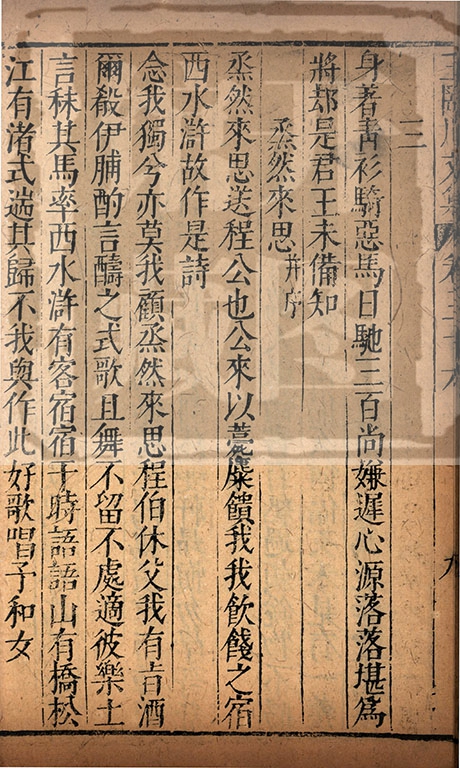 三
身著青衫騎惡馬日馳三百尚嫌遲心源落落堪爲
將却是君王未備知
烝然來思并序
烝然來思送程公也公來以薧麋饋我我飲餞之宿
西水滸故作是詩
念我獨兮亦莫我顧烝然來思程伯休父我有旨酒
爾殽伊脯酌言醻之式歌且舞不留不處適彼樂土
言秣其馬率西水滸有客宿宿于時語語山有橋松
江有渚式遄其歸不我與作此好歌唱予和女